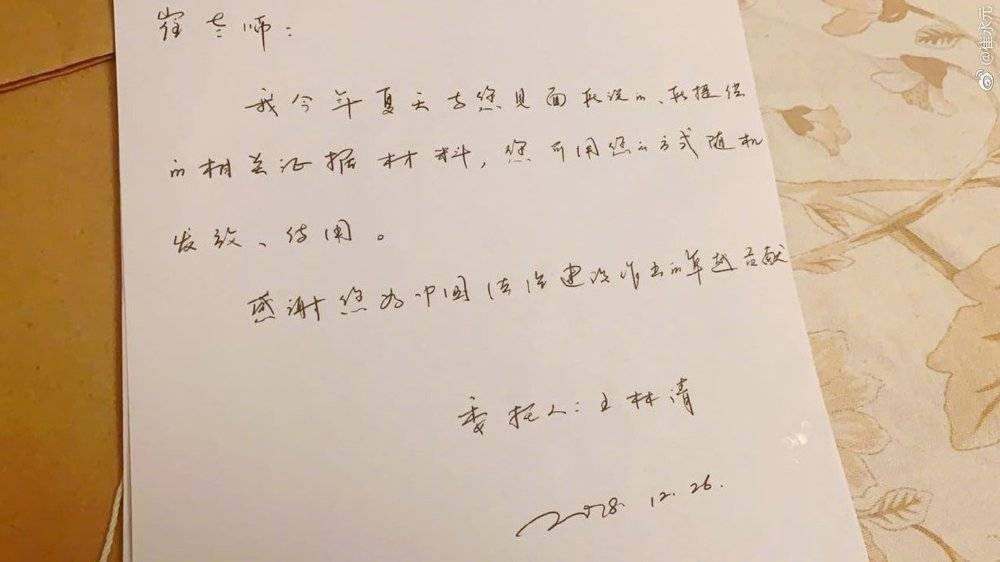 崔老师：
我今年夏天与您见面所说的、所提供
的相关证据材料，您可用您的方式随机
发放、使用。
感谢您为中国法治建设作出的卓越贡献
委托人：王林清
2018.12.26.
@崔永元